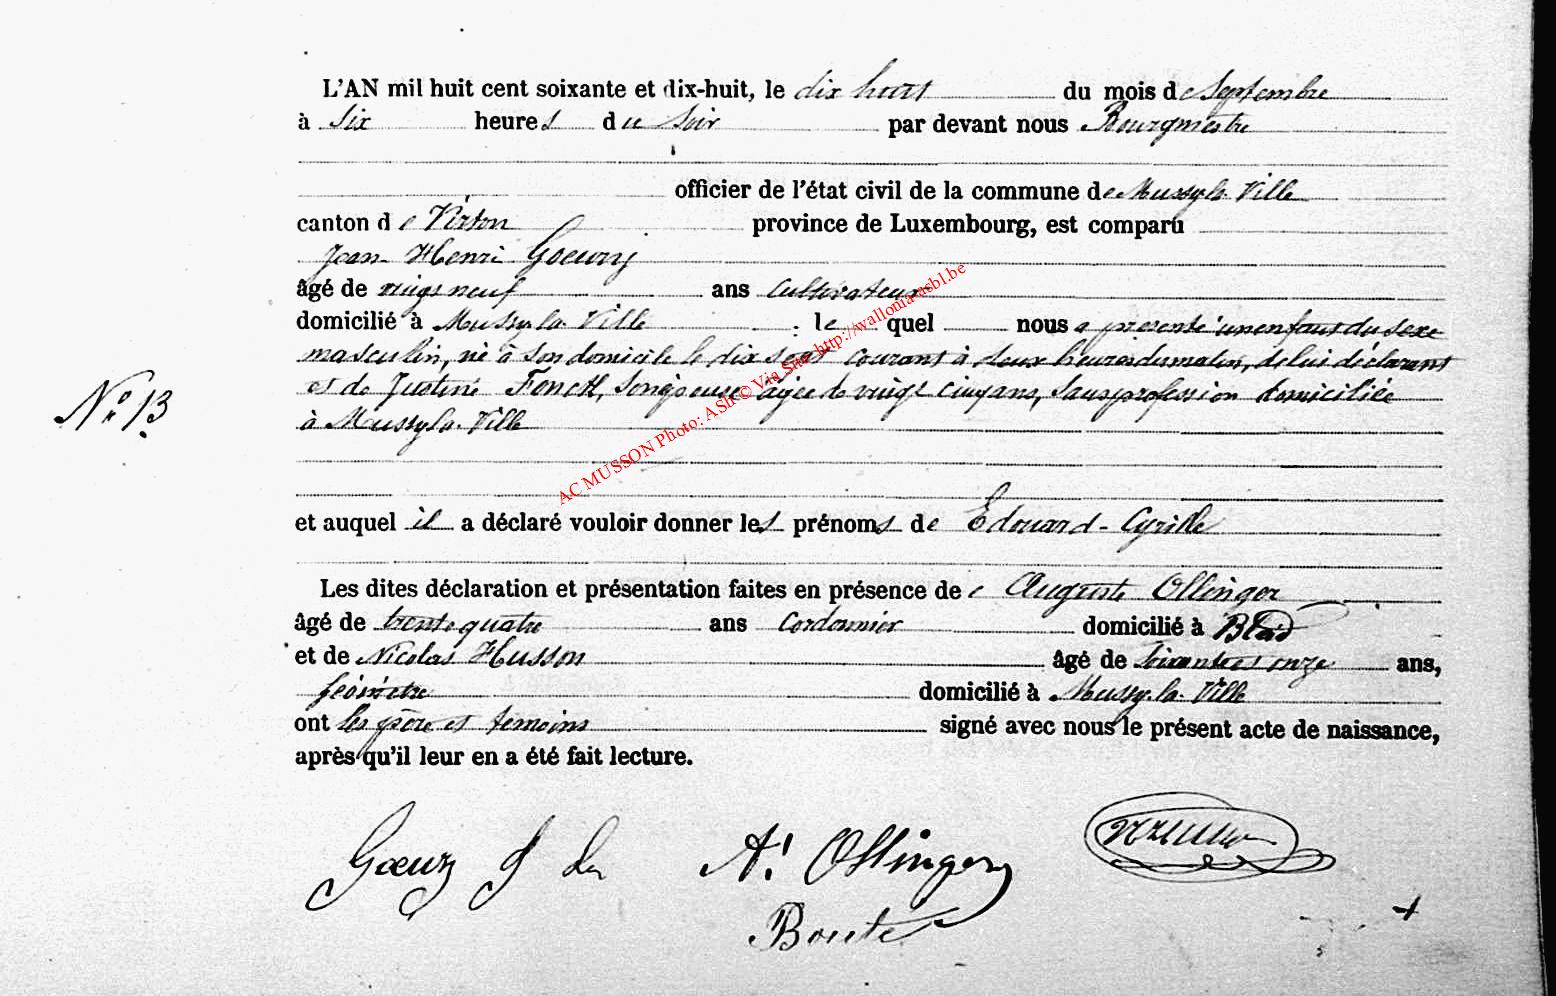 L'AN mil huit cent soixante et dix-huit, le dix huit du mois de Septembre
à Six heures du Soir par devant nous Bourgmestre
officier de l'état civil de la commune de Mussy-la-Ville
canton de Virton province de Luxembourg, est comparu
Jean-Henri Goeury
âgé de vingt neuf ans Cultivateur
domicilié à Mussy-la-Ville : lequel nous a présenté un enfant du sexe
masculin, né à son domicile le dix sept courant à deux heures du matin, de lui déclarant
et de Justine Fonck, son épouse agée de vingt cinq ans, sans profession domiciliée
à Mussy-la-Ville
N° 13
et auquel il a déclaré vouloir donner les prénoms de Edouard-Cyrille
Les dites déclaration et présentation faites en présence de Auguste Ollinger
âgé de trente quatre ans Cordonnier domicilié à Bleid
et de Nicolas Husson âgé de Soixante et onze ans,
géomètre domicilié à Mussy-la-Ville
ont les père et témoins signé avec nous le présent acte de naissance,
après qu'il leur en a été fait lecture.
Goeury J A. Ollinger
Bouté
AC MUSSON Photo: ASh © Via Site http://wallonia-asbl.be